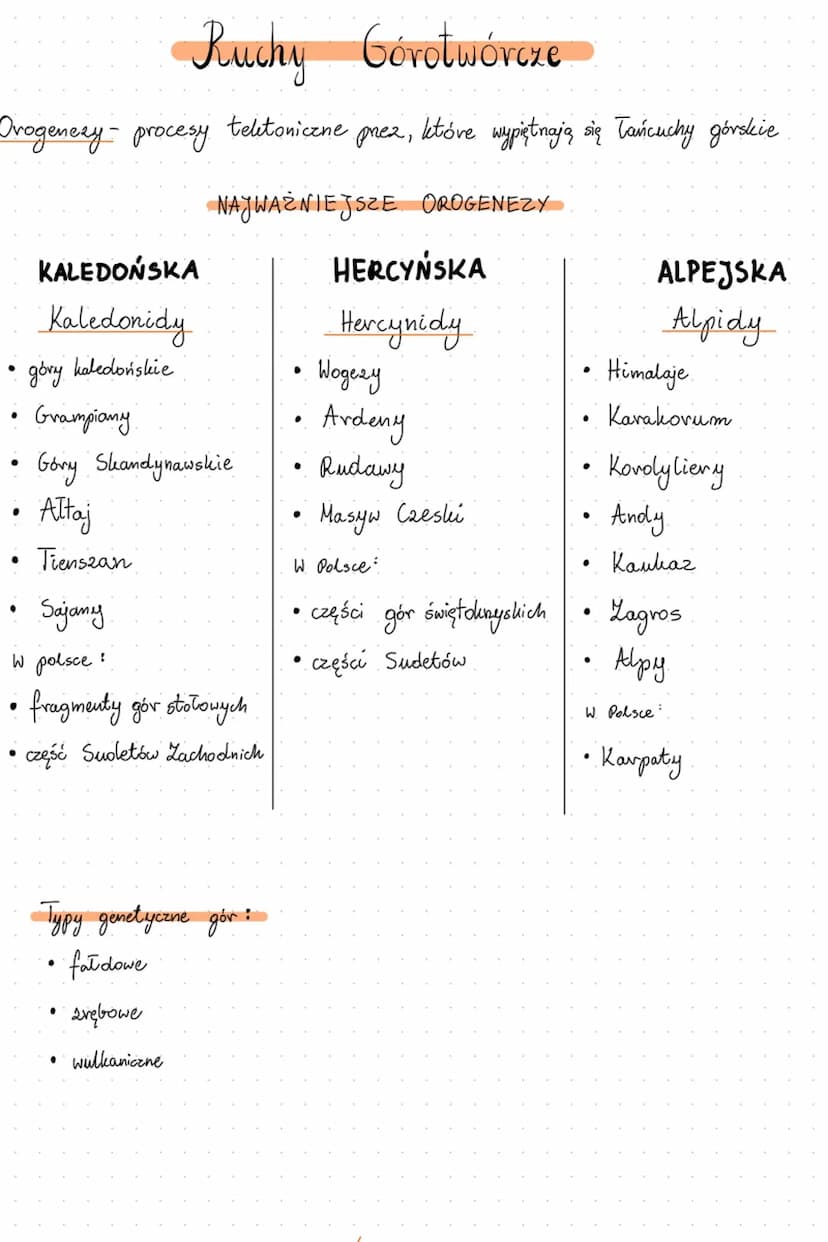 Ruchy Górotwórcze
Orogenezy - procesy tektoniczne przez, które wypiętnają się łańcuchy górskie
NAJWAŻNIEJSZE OROGENEZY
KALEDOŃSKA
Kaledonidy
• góry kaledońskie
• Grampiany
• Góry Skandynawskie
• Ałtaj
• Tienszan
• Sajany
W polsce:
• fragmenty gór stołowych
• część Sudetów Zachodnich
HERCYŃSKA
Hercynidy
• Wogezy
• Ardeny
• Rudawy
• Masyw Czeski
W Polsce:
• części gór świętokrzyskich
• części Sudetów
ALPEJSKA
Alpidy
• Himalaje
• Karakorum
• Kordyliery
• Andy
• Kaukaz
• Zagros
• Alpy
W Polsce:
• Karpaty
Typy genetyczne gór:
• fałdowe
• zrębowe
• wulkaniczne